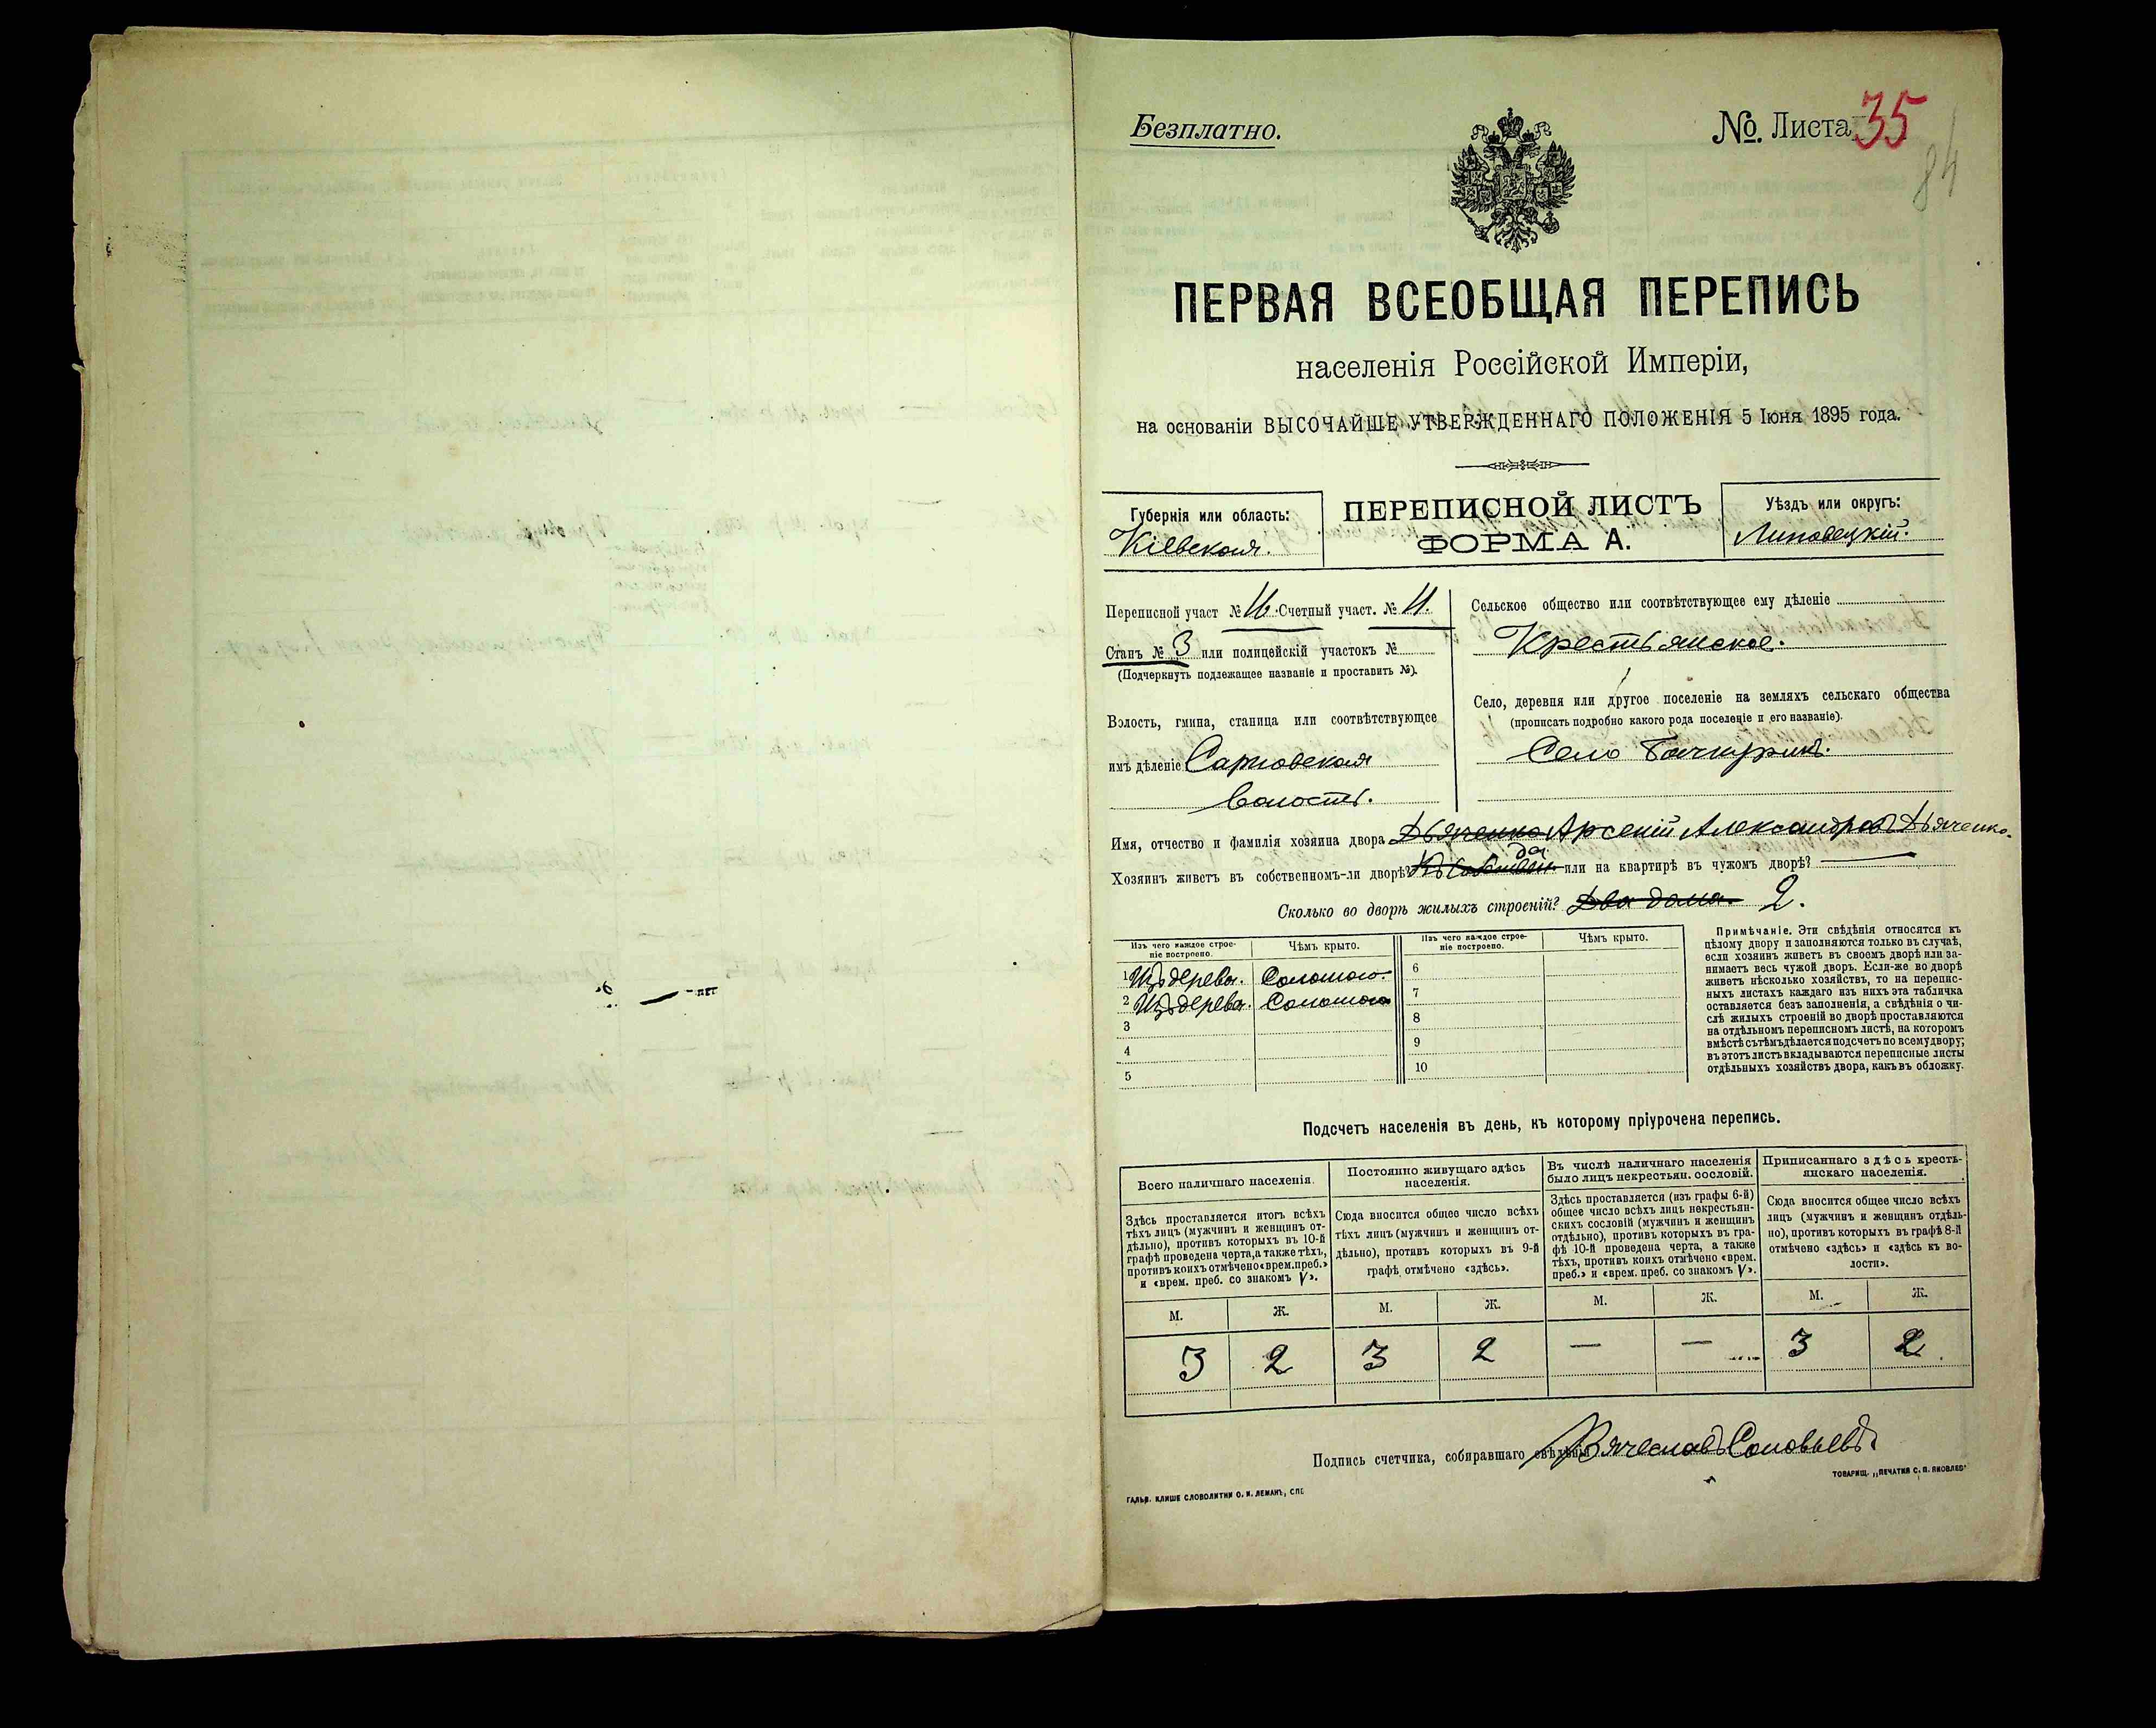 Безплатно.
№. Листа 35
84
ПЕРВАЯ ВСЕОБЩАЯ ПЕРЕПИСЬ
населенія Россійской Имперіи,
на основаніи ВЫСОЧАЙШЕ УТВЕРЖДЕННАГО ПОЛОЖЕНІЯ 5 Іюня 1895 года.
Губернія или область:
Кіевская.
ПЕРЕПИСНОЙ ЛИСТЪ
ФОРМА А.
Уѣздъ или округъ:
Липовецкій.
Переписной участ № Счетный участ. №
Станъ № 3 или полицейскій участокъ №
(Подчеркнуть подлежащее названіе и проставить №).
Волость, гмина, станица или соотвѣтствующее
имъ дѣленіе
волость.
Сельское общество или соотвѣтствующее ему дѣленіе
Крестьянское.
Село, деревня или другое поселеніе на земляхъ сельскаго общества
(прописать подробно какого рода поселеніе и его названіе).
Село
Имя, отчество и фамилія хозяина двора Дьяченко Арсеній Александровъ Дьяченко.
да
Хозяинъ живетъ въ собственномъ-ли дворѣ? или на квартирѣ въ чужомъ дворѣ? —
Сколько во дворѣ жилыхъ строеній? Два дома. 2.
Изъ чего каждое строе-
ніе построено.
Чѣмъ крыто.
Изъ чего каждое строе-
ніе построено.
Чѣмъ крыто.
1 Изъ дерева. Соломою. 6
2 Изъ дерева. Соломою 7
3 8
4 9
5 10
Примѣчаніе. Эти свѣдѣнія относятся къ
цѣлому двору и заполняются только въ случаѣ,
если хозяинъ живетъ въ своемъ дворѣ или за-
нимаетъ весь чужой дворъ. Если-же во дворѣ
живетъ нѣсколько хозяйствъ, то на перепис-
ныхъ листахъ каждаго изъ нихъ эта табличка
оставляется безъ заполненія, а свѣдѣнія о чи-
слѣ жилыхъ строеній во дворѣ проставляются
на отдѣльномъ переписномъ листѣ, на которомъ
вмѣстѣ съ тѣмъ дѣлается подсчетъ по всему двору;
въ этотъ листъ вкладываются переписные листы
отдѣльныхъ хозяйствъ двора, какъ въ обложку.
Подсчетъ населенія въ день, къ которому пріурочена перепись.
Всего наличнаго населенія.
Здѣсь проставляется итогъ всѣхъ
тѣхъ лицъ (мужчинъ и женщинъ от-
дѣльно), противъ которыхъ въ 10-й
графѣ проведена черта, а также тѣхъ,
противъ коихъ отмѣчено «врем. преб.»
и «врем. преб. со знакомъ V».
Постоянно живущаго здѣсь
населенія.
Сюда вносится общее число всѣхъ
тѣхъ лицъ (мужчинъ и женщинъ от-
дѣльно), противъ которыхъ въ 9-й
графѣ отмѣчено «здѣсь».
Въ числѣ наличнаго населенія
было лицъ некрестьян. сословій.
Здѣсь проставляется (изъ графы 6-й)
общее число всѣхъ лицъ некрестьян-
скихъ сословій (мужчинъ и женщинъ
отдѣльно), противъ которыхъ въ гра-
фѣ 10-й проведена черта, а также
тѣхъ, противъ коихъ отмѣчено «врем.
преб.» и «врем. преб. со знакомъ V».
Приписаннаго здѣсь кресть-
янскаго населенія.
Сюда вносится общее число всѣхъ
лицъ (мужчинъ и женщинъ отдѣль-
но), противъ которыхъ въ графѣ 8-й
отмѣчено «здѣсь» и «здѣсь къ во-
лости».
М. Ж. М. Ж. М. Ж. М. Ж.
3 2 3 2 — — 3 2
Подпись счетчика, собиравшаго свѣдѣнія Вячеславъ Соловьевъ
ГАЛЬВ. КЛИШЕ СЛОВОЛИТНИ О. И. ЛЕМАНЪ, СПБ
ТОВАРИЩ. „ПЕЧАТНЯ С. П. ЯКОВЛЕВ"